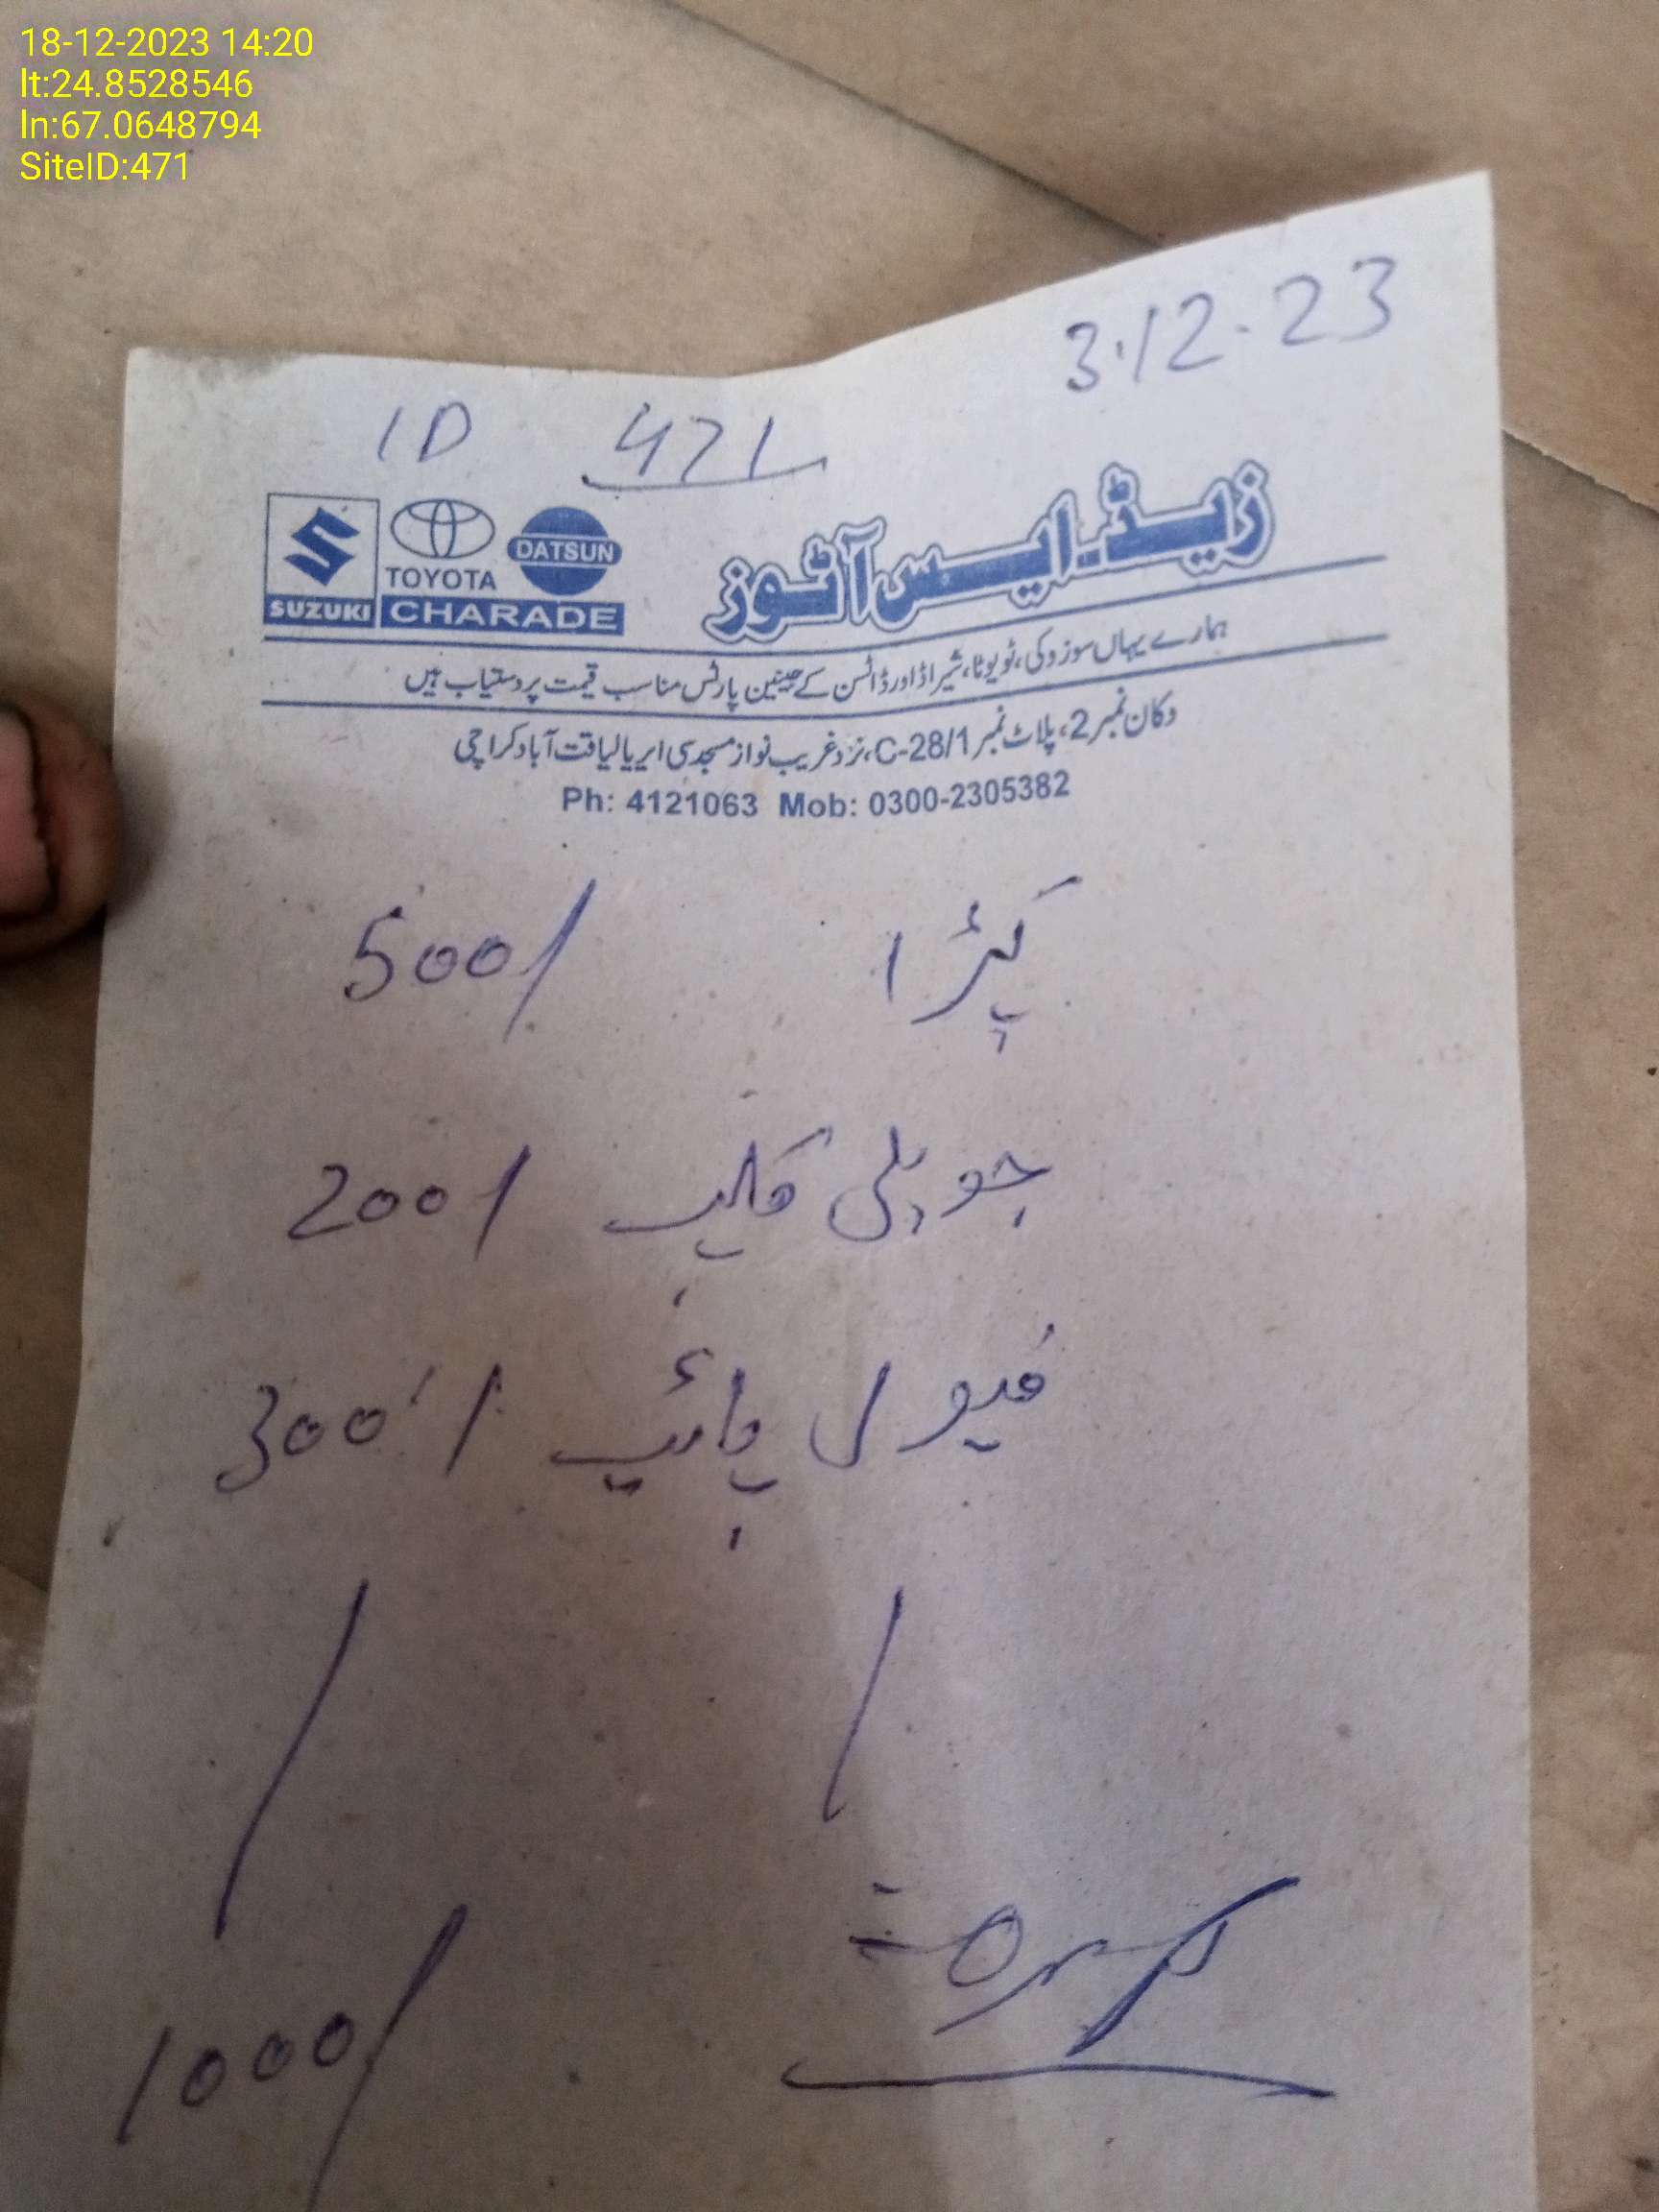 18-12-2023 14:20
lt:24.8528546
ln:67.0648794
SiteID:471
3.12.23
ID 471
SUZUKI
TOYOTA
DATSUN
CHARADE
زیڈ.ایس آٹوز
ہمارے یہاں سوزوکی، ٹویوٹا، شیراڈ اور ڈاٹسن کے جینین پارٹس مناسب قیمت پر دستیاب ہیں
دکان نمبر 2، پلاٹ نمبر C-28/1، نزد غریب نواز مسجد سی ایریا لیاقت آباد کراچی
Ph: 4121063 Mob: 0300-2305382
کپڑا 500/
جوبلی کلپ 200/
فیول پائپ 300/
1000/